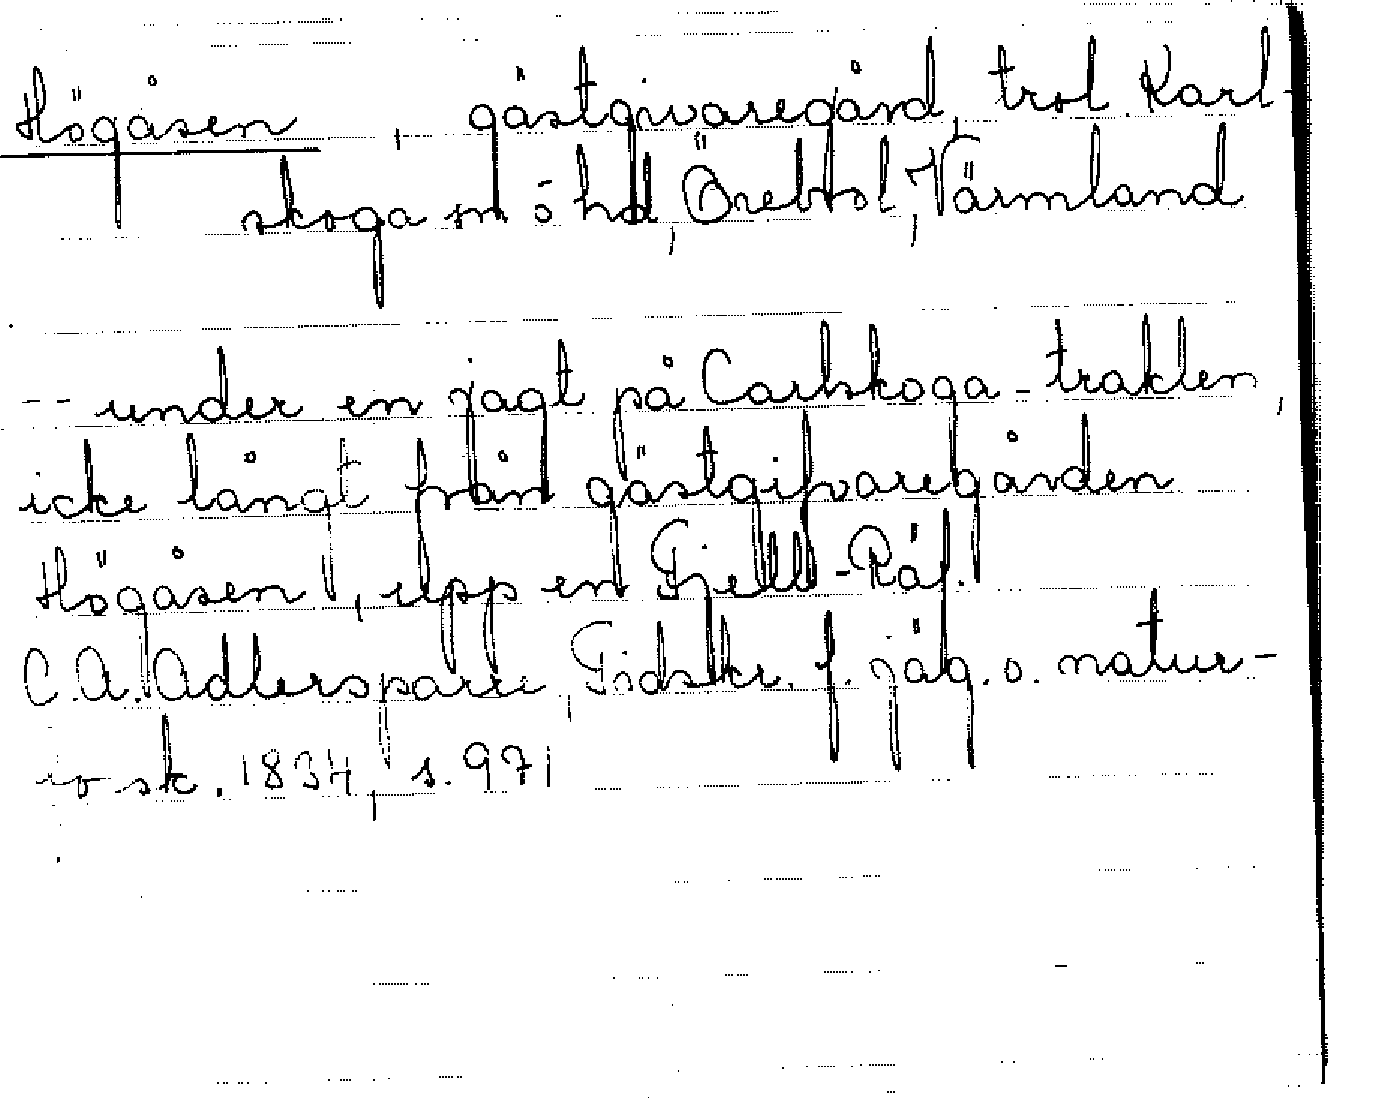 Högåsen, gästgivaregård, trol. Karl-
skoga sn ö hd, Örebro l, Värmland
-- under en jagt på Carlskoga-trakten,
icke långt från gästgifvaregården
Högåsen, upp en Fjell-Räf.
C.A. Adlersparre, Tidskr. f. jäg. o. natur-
io sk. 1834, s. 971